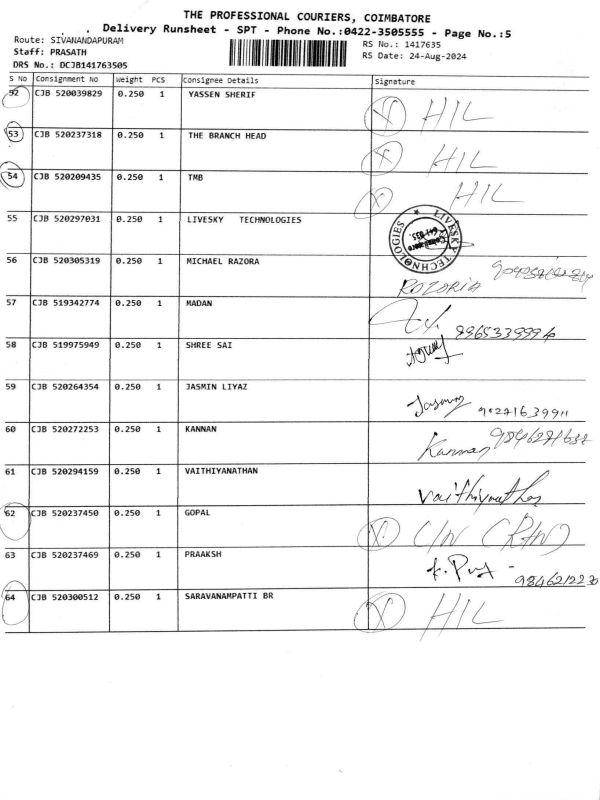 THE PROFESSIONAL COURIERS, COIMBATORE
Delivery Runsheet - SPT - Phone No.:0422-3505555 - Page No.:5
Route: SIVANANDAPURAM
RS No.: 1417635
Staff: PRASATH
RS Date: 24-Aug-2024
DRS No.: DCJB141763505
S No Consignment No Weight PCS Consignee Details Signature
52 CJB 520039829 0.250 1 YASSEN SHERIF X HIL
53 CJB 520237318 0.250 1 THE BRANCH HEAD X HIL
54 CJB 520209435 0.250 1 TMB X HIL
55 CJB 520297031 0.250 1 LIVESKY TECHNOLOGIES LIVESKY TECHNOLOGIES
56 CJB 520305319 0.250 1 MICHAEL RAZORA ROZORIA
57 CJB 519342774 0.250 1 MADAN
58 CJB 519975949 0.250 1 SHREE SAI
59 CJB 520264354 0.250 1 JASMIN LIYAZ
60 CJB 520272253 0.250 1 KANNAN Kannan
61 CJB 520294159 0.250 1 VAITHIYANATHAN Vaithiynathan
62 CJB 520237450 0.250 1 GOPAL X
63 CJB 520237469 0.250 1 PRAAKSH
64 CJB 520300512 0.250 1 SARAVANAMPATTI BR X HIL